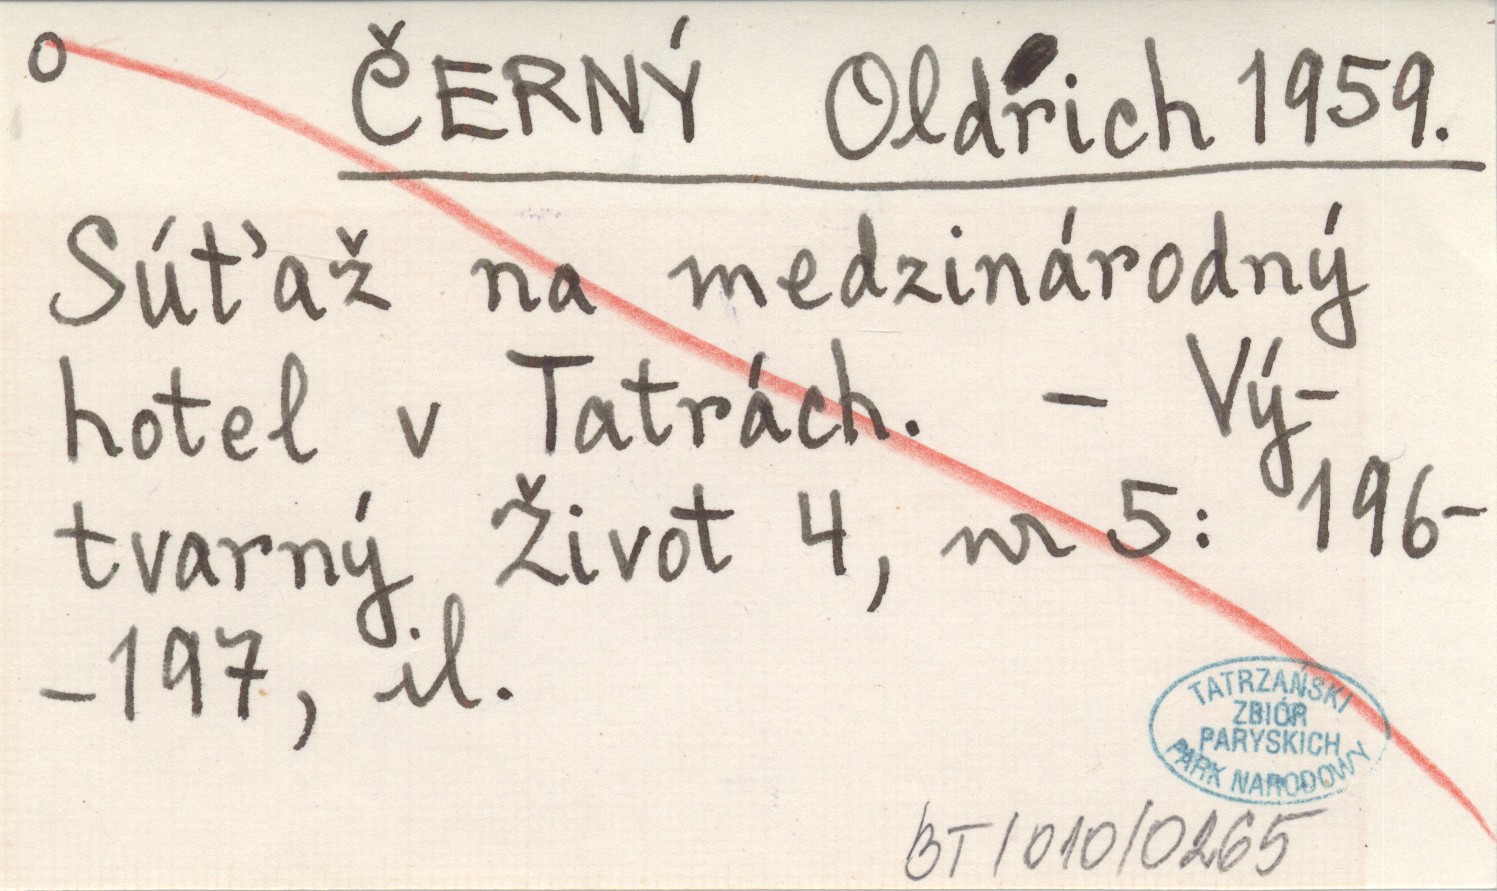 o ČERNÝ Oldřich 1959.
Súťaž na medzinárodný
hotel v Tatrách. – Vý-
tvarný Život 4, nr 5: 196-
-197, il.
TATRZAŃSKI
ZBIÓR
PARYSKICH
PARK NARODOWY
BT/010/0265